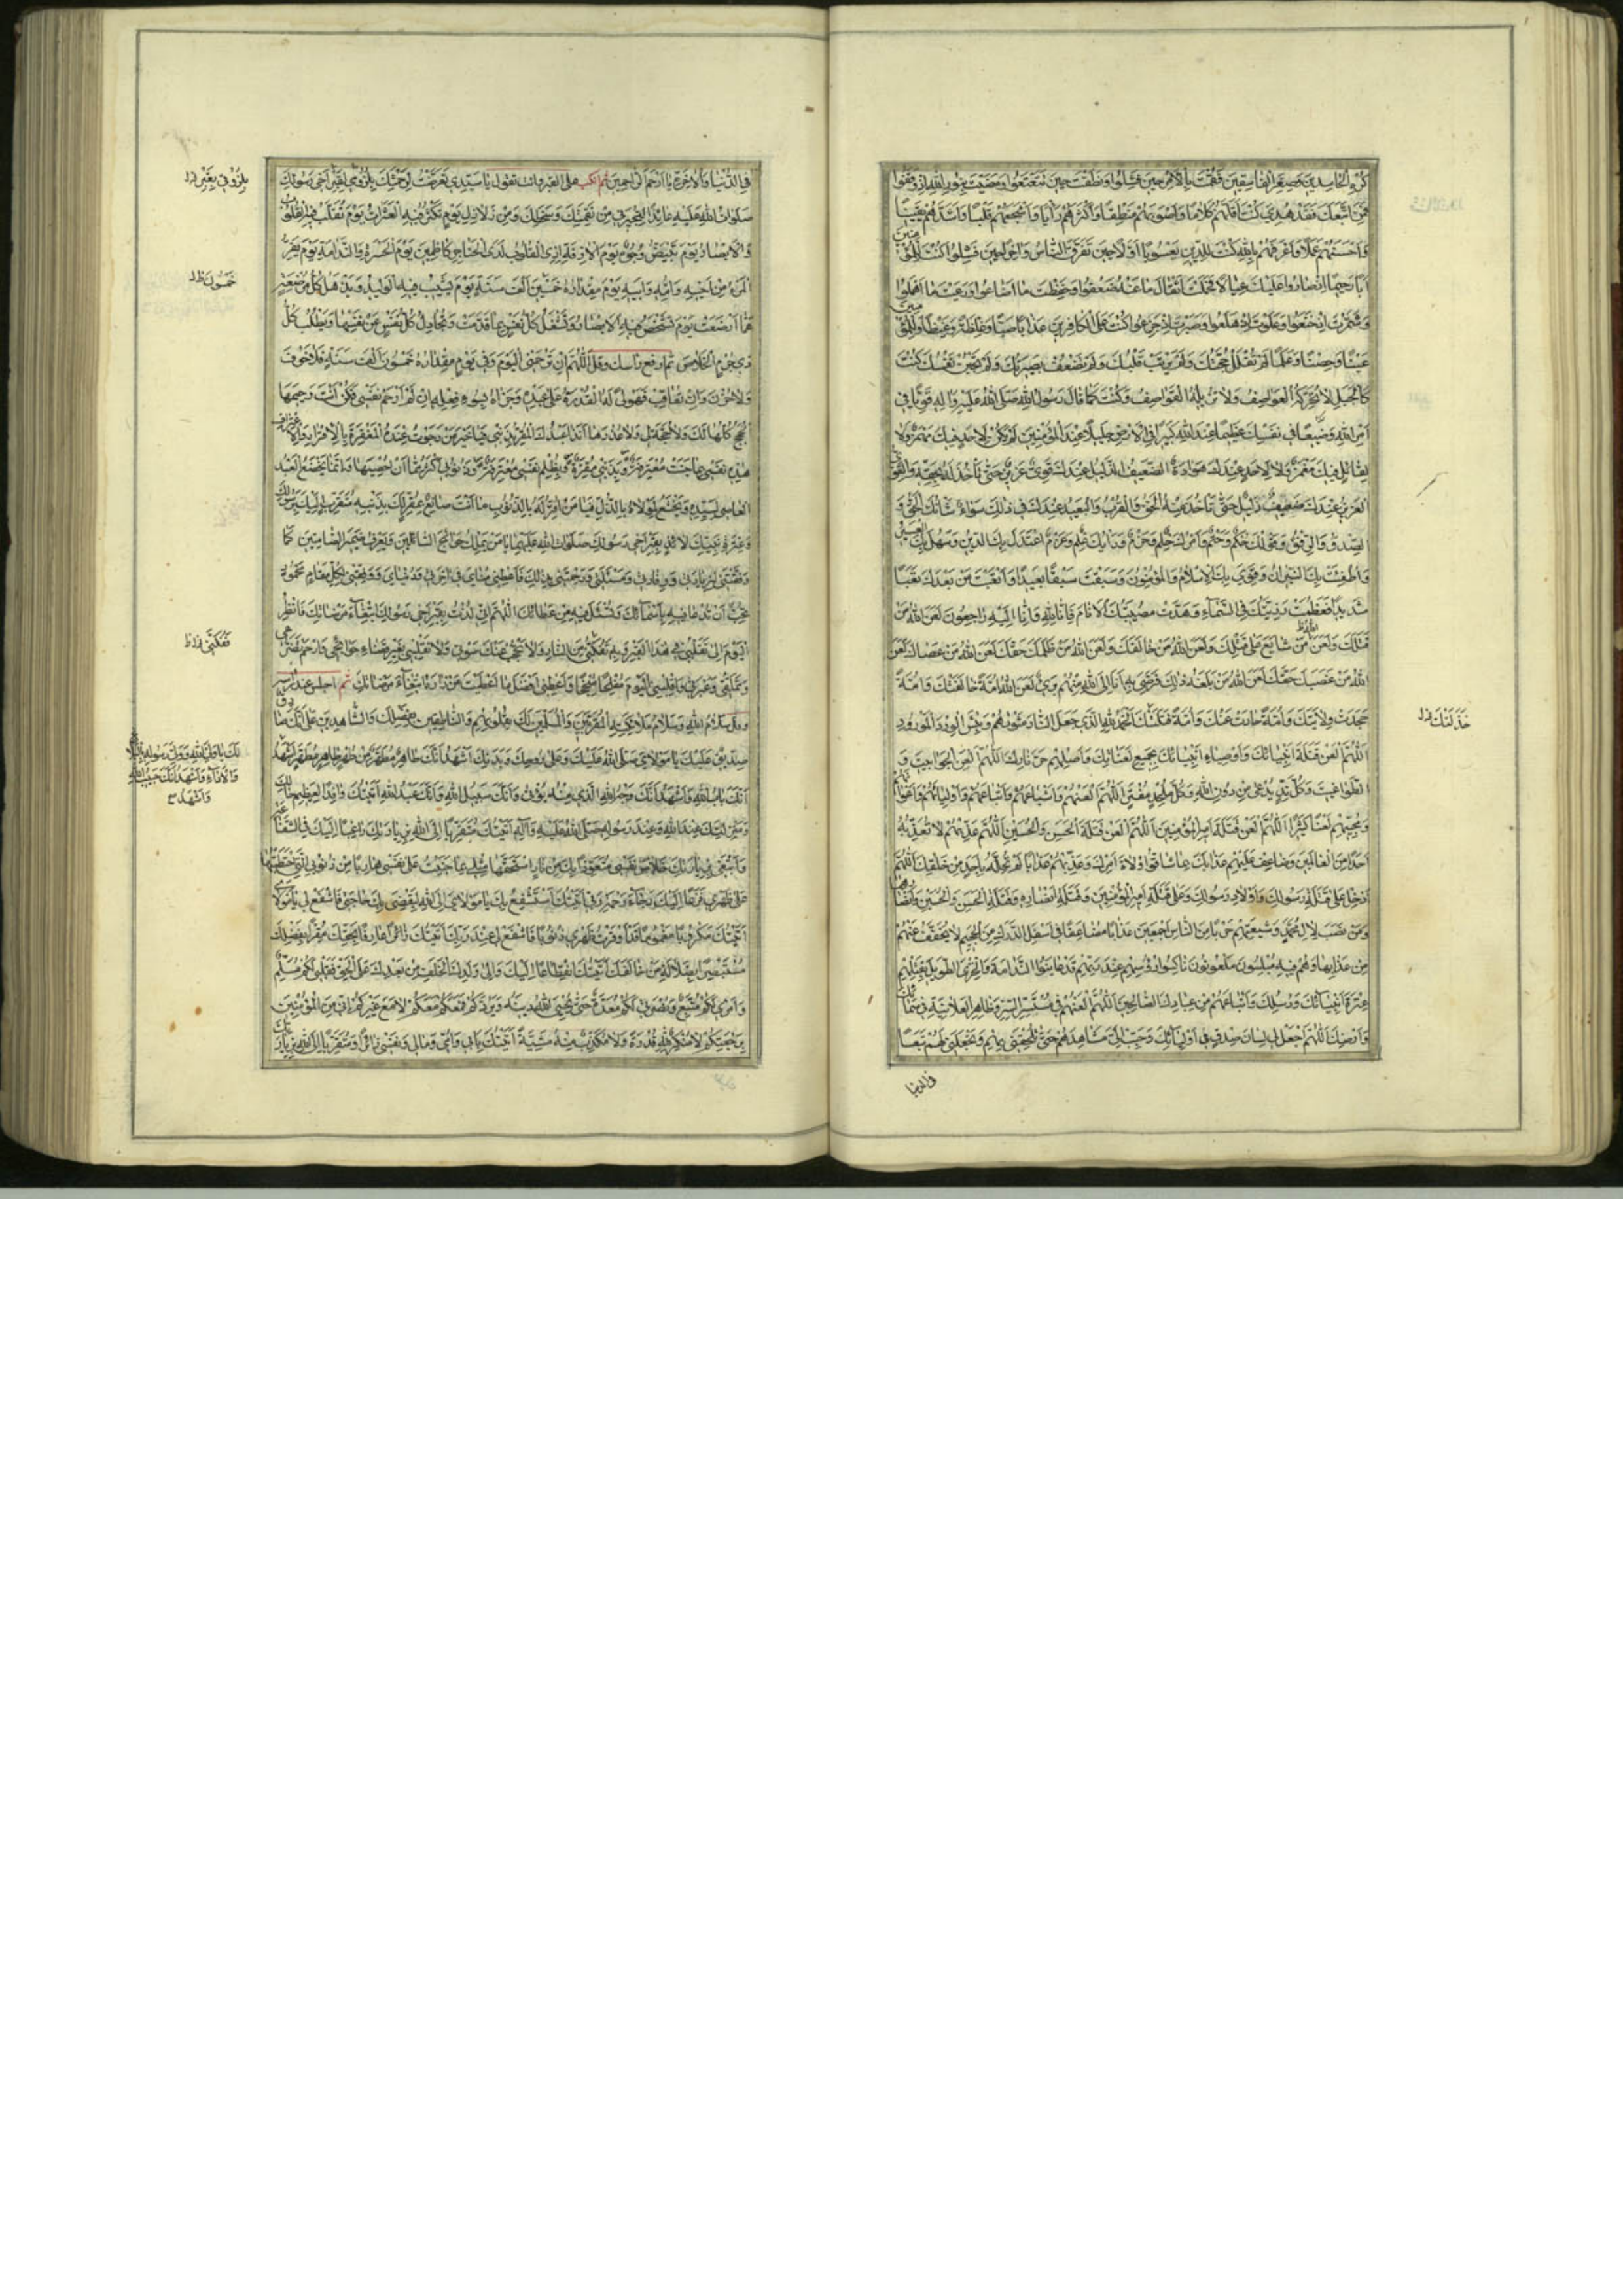 كُرْهِ الْحَاسِدِينَ وَصِغَرِ الْفَاسِقِينَ فَقُمْتَ بِالْأَمْرِ حِينَ فَشِلُوا وَنَطَقْتَ حِينَ تَتَعْتَعُوا وَمَضَيْتَ بِنُورِ اللهِ إِذْ وَقَفُوا
فَمَنِ اتَّبَعَكَ فَقَدْ هُدِيَ كُنْتَ أَقَلَّهُمْ كَلَامًا وَأَصْوَبَهُمْ مَنْطِقًا وَأَكْثَرَهُمْ رَأْيًا وَأَشْجَعَهُمْ قَلْبًا وَأَشَدَّهُمْ يَقِينًا
وَأَحْسَنَهُمْ عَمَلًا وَأَعْرَفَهُمْ بِاللهِ كُنْتَ لِلدِّينِ يَعْسُوبًا أَوَّلًا حِينَ تَفَرَّقَ النَّاسُ وَآخِرًا حِينَ فَشِلُوا كُنْتَ لِلْمُؤْمِنِينَ
أَبًا رَحِيمًا إِذْ صَارُوا عَلَيْكَ عِيَالًا فَحَمَلْتَ أَثْقَالَ مَا عَنْهُ ضَعُفُوا وَحَفِظْتَ مَا أَضَاعُوا وَرَعَيْتَ مَا أَهْمَلُوا
وَشَمَّرْتَ إِذْ خَنَعُوا وَعَلَوْتَ إِذْ هَلَعُوا وَصَبَرْتَ إِذْ جَزِعُوا كُنْتَ عَلَى الْكَافِرِينَ عَذَابًا صَبًّا وَغِلْظَةً وَغَيْظًا وَلِلْمُؤْمِنِينَ
غَيْثًا وَحِصْنًا وَعَلَمًا لَمْ تُفْلَلْ حُجَّتُكَ وَلَمْ يَزِغْ قَلْبُكَ وَلَمْ تَضْعُفْ بَصِيرَتُكَ وَلَمْ تَجْبُنْ نَفْسُكَ كُنْتَ
كَالْجَبَلِ لَا تُحَرِّكُهُ الْعَوَاصِفُ وَلَا تُزِيلُهُ الْقَوَاصِفُ وَكُنْتَ كَمَا قَالَ رَسُولُ اللهِ صَلَّى اللهُ عَلَيْهِ وَآلِهِ قَوِيًّا فِي
أَمْرِ اللهِ وَضِيعًا فِي نَفْسِكَ عَظِيمًا عِنْدَ اللهِ كَبِيرًا فِي الْأَرْضِ جَلِيلًا عِنْدَ الْمُؤْمِنِينَ لَمْ يَكُنْ لِأَحَدٍ فِيكَ مَهْمَزٌ وَلَا
لِقَائِلٍ فِيكَ مَغْمَزٌ وَلَا لِأَحَدٍ عِنْدَكَ هَوَادَةٌ الضَّعِيفُ الذَّلِيلُ عِنْدَكَ قَوِيٌّ عَزِيزٌ حَتَّى تَأْخُذَ لَهُ بِحَقِّهِ وَالْقَوِيُّ
الْعَزِيزُ عِنْدَكَ ضَعِيفٌ ذَلِيلٌ حَتَّى تَأْخُذَ مِنْهُ الْحَقَّ وَالْقَرِيبُ وَالْبَعِيدُ عِنْدَكَ فِي ذَلِكَ سَوَاءٌ شَأْنُكَ الْحَقُّ وَ
الصِّدْقُ وَالرِّفْقُ وَقَوْلُكَ حُكْمٌ وَحَتْمٌ وَأَمْرُكَ حِلْمٌ وَحَزْمٌ وَرَأْيُكَ عِلْمٌ وَعَزْمٌ اعْتَدَلَ بِكَ الدِّينُ وَسَهُلَ بِكَ الْعَسِيرُ
وَأُطْفِئَتْ بِكَ النِّيرَانُ وَقَوِيَ بِكَ الْإِسْلَامُ وَالْمُؤْمِنُونَ وَسَبَقْتَ سَبْقًا بَعِيدًا وَأَتْعَبْتَ مَنْ بَعْدَكَ تَعَبًا
شَدِيدًا فَعَظُمَتْ رَزِيَّتُكَ فِي السَّمَاءِ وَهَدَّتْ مُصِيبَتُكَ الْأَنَامَ فَإِنَّا لِلهِ وَإِنَّا إِلَيْهِ رَاجِعُونَ لَعَنَ اللهُ مَنْ
قَتَلَكَ وَلَعَنَ مَنْ شَايَعَ عَلَى قَتْلِكَ وَلَعَنَ اللهُ مَنْ خَالَفَكَ وَلَعَنَ اللهُ مَنْ ظَلَمَكَ حَقَّكَ لَعَنَ اللهُ مَنْ عَصَاكَ لَعَنَ
اللهُ مَنْ غَصَبَكَ حَقَّكَ لَعَنَ اللهُ مَنْ بَلَغَهُ ذَلِكَ فَرَضِيَ بِهِ أَنَا إِلَى اللهِ مِنْهُمْ بَرِيءٌ لَعَنَ اللهُ أُمَّةً خَالَفَتْكَ وَأُمَّةً
جَحَدَتْ وِلَايَتَكَ وَأُمَّةً حَادَتْ عَنْكَ وَأُمَّةً قَتَلَتْكَ الْحَمْدُ لِلهِ الَّذِي جَعَلَ النَّارَ مَثْوَاهُمْ وَبِئْسَ الْوِرْدُ الْمَوْرُودُ
خَذَلَتْكَ
اللَّهُمَّ الْعَنْ قَتَلَةَ أَنْبِيَائِكَ وَأَوْصِيَاءِ أَنْبِيَائِكَ بِجَمِيعِ لَعَنَاتِكَ وَأَصْلِهِمْ حَرَّ نَارِكَ اللَّهُمَّ الْعَنِ الْجَوَابِيتَ وَ
الطَّوَاغِيتَ وَكُلَّ نِدٍّ يُدْعَى مِنْ دُونِ اللهِ وَكُلَّ مُلْحِدٍ مُفْتَرٍ اللَّهُمَّ الْعَنْهُمْ وَأَشْيَاعَهُمْ وَأَتْبَاعَهُمْ وَأَوْلِيَاءَهُمْ وَأَعْوَانَهُمْ
وَمُحِبِّيهِمْ لَعْنًا كَثِيرًا اللَّهُمَّ الْعَنْ قَتَلَةَ أَمِيرِ الْمُؤْمِنِينَ اللَّهُمَّ الْعَنْ قَتَلَةَ الْحَسَنِ وَالْحُسَيْنِ اللَّهُمَّ عَذِّبْهُمْ لَا تُعَذِّبُهُ
أَحَدًا مِنَ الْعَالَمِينَ وَضَاعِفْ عَلَيْهِمْ عَذَابَكَ بِمَا شَاقُّوا وُلَاةَ أَمْرِكَ وَعَذِّبْهُمْ عَذَابًا لَمْ تُحِلَّهُ بِأَحَدٍ مِنْ خَلْقِكَ اللَّهُمَّ
أَدْخِلْ عَلَى قَتَلَةِ رَسُولِكَ وَأَوْلَادِ رَسُولِكَ وَعَلَى قَتَلَةِ أَمِيرِ الْمُؤْمِنِينَ وَقَتَلَةِ أَنْصَارِهِ وَقَتَلَةِ الْحَسَنِ وَالْحُسَيْنِ وَأَنْصَارِهِمَا
وَمَنْ نَصَبَ لِآلِ مُحَمَّدٍ وَشِيعَتِهِمْ حَرْبًا مِنَ النَّاسِ أَجْمَعِينَ عَذَابًا مُضَاعَفًا فِي أَسْفَلِ الدَّرَكِ مِنَ الْجَحِيمِ لَا يُخَفَّفُ عَنْهُمْ
مِنْ عَذَابِهَا وَهُمْ فِيهِ مُبْلِسُونَ مَلْعُونُونَ نَاكِسُوا رُءُوسِهِمْ عِنْدَ رَبِّهِمْ قَدْ عَايَنُوا النَّدَامَةَ وَالْخِزْيَ الطَّوِيلَ بِقَتْلِهِمْ
عِتْرَةَ أَنْبِيَائِكَ وَرُسُلِكَ وَأَتْبَاعَهُمْ مِنْ عِبَادِكَ الصَّالِحِينَ اللَّهُمَّ الْعَنْهُمْ فِي مُسْتَسِرِّ السِّرِّ وَظَاهِرِ الْعَلَانِيَةِ فِي سَمَائِكَ
وَأَرْضِكَ اللَّهُمَّ اجْعَلْ لِي لِسَانَ صِدْقٍ فِي أَوْلِيَائِكَ وَحَبِّبْ إِلَيَّ مَشَاهِدَهُمْ حَتَّى تُلْحِقَنِي بِهِمْ وَتَجْعَلَنِي لَهُمْ تَبَعًا
فِي الدُّنْيَا
فِي الدُّنْيَا وَالْآخِرَةِ يَا أَرْحَمَ الرَّاحِمِينَ ثم انكب على القبر وانت تقول يَا سَيِّدِي تَعَرَّضْتُ لِرَحْمَتِكَ بِلُزُومِي لِقَبْرِ أَخِي رَسُولِكَ
بِلُزُومِي بِقَبْرِ
صَلَوَاتُ اللهِ عَلَيْهِ عَائِذًا لِتُجِيرَنِي مِنْ نَقِمَتِكَ وَسَخَطِكَ وَمِنْ زَلَازِلِ يَوْمٍ تَكْثُرُ فِيهِ الْعَثَرَاتُ يَوْمَ تُقَلَّبُ فِيهِ الْقُلُوبُ
وَالْأَبْصَارُ يَوْمَ تَبْيَضُّ وُجُوهٌ يَوْمَ الْآزِفَةِ إِذِ الْقُلُوبُ لَدَى الْحَنَاجِرِ كَاظِمِينَ يَوْمَ الْحَسْرَةِ وَالنَّدَامَةِ يَوْمَ يَفِرُّ
الْمَرْءُ مِنْ أَخِيهِ وَأُمِّهِ وَأَبِيهِ يَوْمَ مِقْدَارُهُ خَمْسِينَ أَلْفَ سَنَةٍ يَوْمَ يَشِيبُ فِيهِ الْوَلِيدُ وَتَذْهَلُ كُلُّ مُرْضِعَةٍ
خَمْسُونَ
عَمَّا أَرْضَعَتْ يَوْمَ تَشْخَصُ فِيهِ الْأَبْصَارُ وَتُشْغَلُ كُلُّ نَفْسٍ بِمَا قَدَّمَتْ وَتُجَادِلُ كُلُّ نَفْسٍ عَنْ نَفْسِهَا وَيَطْلُبُ كُلُّ
ذِي جُرْمٍ الْخَلَاصَ ثم ارفع راسك وقل اللَّهُمَّ إِنْ تَرْحَمْنِي الْيَوْمَ وَفِي يَوْمٍ مِقْدَارُهُ خَمْسُونَ أَلْفَ سَنَةٍ فَلَا خَوْفَ
وَلَا حُزْنَ وَإِنْ تُعَاقِبْ فَمَوْلًى لَهُ الْقُدْرَةُ عَلَى عَبْدِهِ وَجَزَاهُ بِسُوءِ فِعْلِهِ إِنْ لَمْ أَرْحَمْ نَفْسِي فَكُنْ أَنْتَ رَحِيمَهَا
هَذِهِ نَفْسِي بِمَا جَنَتْ مُعْتَرِفَةٌ وَبِذَنْبِي مُقِرَّةٌ وَبِظُلْمِ نَفْسِي مُعْتَرِفَةٌ وَذُنُوبِي أَكْثَرُ مِمَّا أَنْ أُحْصِيَهَا وَإِنَّمَا يَخْضَعُ الْعَبْدُ
الْعَاصِي لِسَيِّدِهِ وَيَخْشَعُ لِمَوْلَاهُ بِالذُّلِّ فَيَا مَنْ أُقِرُّ لَهُ بِالذُّنُوبِ مَا أَنْتَ صَانِعٌ بِمُقِرٍّ لَكَ بِذَنْبِهِ مُتَقَرِّبٍ إِلَيْكَ بِرَسُولِكَ
وَعِتْرَةِ نَبِيِّكَ لَائِذٍ بِقَبْرِ أَخِي رَسُولِكَ صَلَوَاتُ اللهِ عَلَيْهِمَا يَا مَنْ يَمْلِكُ حَوَائِجَ السَّائِلِينَ وَيَعْرِفُ ضَمِيرَ الصَّامِتِينَ كَمَا
وَفَّقْتَنِي لِزِيَارَتِي وَوِفَادَتِي وَمَسْأَلَتِي وَرَحِمْتَنِي بِذَلِكَ فَأَعْطِنِي مُنَايَ فِي آخِرَتِي وَدُنْيَايَ وَوَفِّقْنِي لِكُلِّ مَقَامٍ مَحْمُودٍ
تُحِبُّ أَنْ تُدْعَا فِيهِ بِأَسْمَائِكَ وَتُسْأَلَ فِيهِ مِنْ عَطَائِكَ اللَّهُمَّ إِنِّي لُذْتُ بِقَبْرِ أَخِي رَسُولِكَ ابْتِغَاءَ مَرْضَاتِكَ فَانْظُرِ
الْيَوْمَ إِلَى تَقَلُّبِي فِي هَذَا الْقَبْرِ وَبِهِ تَفُكَّنِي مِنَ النَّارِ وَلَا تَحْجُبْ عَنْكَ صَوْتِي وَلَا تَقْلِبْنِي بِغَيْرِ قَضَاءِ حَوَائِجِي وَارْحَمْ تَضَرُّعِي
فَفُكَّنِي
وَتَمَلُّقِي وَعَبْرَتِي وَاقْلِبْنِي الْيَوْمَ مُفْلِحًا مُنْجِحًا وَأَعْطِنِي أَفْضَلَ مَا أَعْطَيْتَ مَنْ زَارَهُ ابْتِغَاءَ مَرْضَاتِكَ ثم اجلس عند راسه
وقل سَلَامُ اللهِ وَسَلَامُ مَلَائِكَتِهِ الْمُقَرَّبِينَ وَالْمُسَلِّمِينَ لَكَ بِقُلُوبِهِمْ وَالنَّاطِقِينَ بِفَضْلِكَ وَالشَّاهِدِينَ عَلَى أَنَّكَ صَادِقٌ
صِدِّيقٌ عَلَيْكَ يَا مَوْلَايَ صَلَّى اللهُ عَلَيْكَ وَعَلَى رُوحِكَ وَبَدَنِكَ أَشْهَدُ أَنَّكَ طَاهِرٌ مُطَهَّرٌ مِنْ طُهْرٍ طَاهِرٍ مُطَهَّرٍ أَشْهَدُ
أَنَّكَ بَابُ اللهِ وَأَشْهَدُ أَنَّكَ وَجْهُ اللهِ الَّذِي مِنْهُ يُؤْتَى وَأَنَّكَ سَبِيلُ اللهِ وَأَنَّكَ عَبْدُ اللهِ أَتَيْتُكَ وَافِدًا لِعَظِيمِ حَالِكَ
وَمَنْزِلَتِكَ عِنْدَ اللهِ وَعِنْدَ رَسُولِهِ صَلَّى اللهُ عَلَيْهِ وَآلِهِ أَتَيْتُكَ مُتَقَرِّبًا إِلَى اللهِ بِزِيَارَتِكَ رَاغِبًا إِلَيْكَ فِي الشَّفَاعَةِ
عَلَى ظَهْرِي فَزِعًا إِلَيْكَ رَجَاءَ رَحْمَةِ رَبِّي أَتَيْتُكَ أَسْتَشْفِعُ بِكَ يَا مَوْلَايَ إِلَى اللهِ لِيَقْضِيَ بِكَ حَاجَتِي فَاشْفَعْ لِي يَا مَوْلَايَ
أَتَيْتُكَ مَكْرُوبًا مَغْمُومًا قَدْ أَوْقَرْتُ ظَهْرِي ذُنُوبًا فَاشْفَعْ لِي عِنْدَ رَبِّكَ أَتَيْتُكَ زَائِرًا عَارِفًا بِحَقِّكَ مُقِرًّا بِفَضْلِكَ
مُسْتَبْصِرًا بِضَلَالَةِ مَنْ خَالَفَكَ أَتَيْتُكَ انْقِطَاعًا إِلَيْكَ وَإِلَى وَلَدِكَ الْخَلَفِ مِنْ بَعْدِكَ عَلَى الْحَقِّ فَقَلْبِي لَكُمْ مُسَلِّمٌ
وَأَمْرِي لَكُمْ مُتَّبِعٌ وَنُصْرَتِي لَكُمْ مُعَدَّةٌ حَتَّى يُحْيِيَ اللهُ دِينَهُ وَيَرُدَّكُمْ فَمَعَكُمْ مَعَكُمْ لَا مَعَ غَيْرِكُمْ إِنِّي مِنَ الْمُؤْمِنِينَ
بِرَجْعَتِكُمْ لَا مُنْكِرٌ لِلهِ قُدْرَةً وَلَا مُكَذِّبٌ مِنْهُ مَشِيَّةً أَتَيْتُكَ بِأَبِي وَأُمِّي وَمَالِي وَنَفْسِي زَائِرًا وَمُتَقَرِّبًا إِلَى اللهِ بِزِيَارَتِكَ